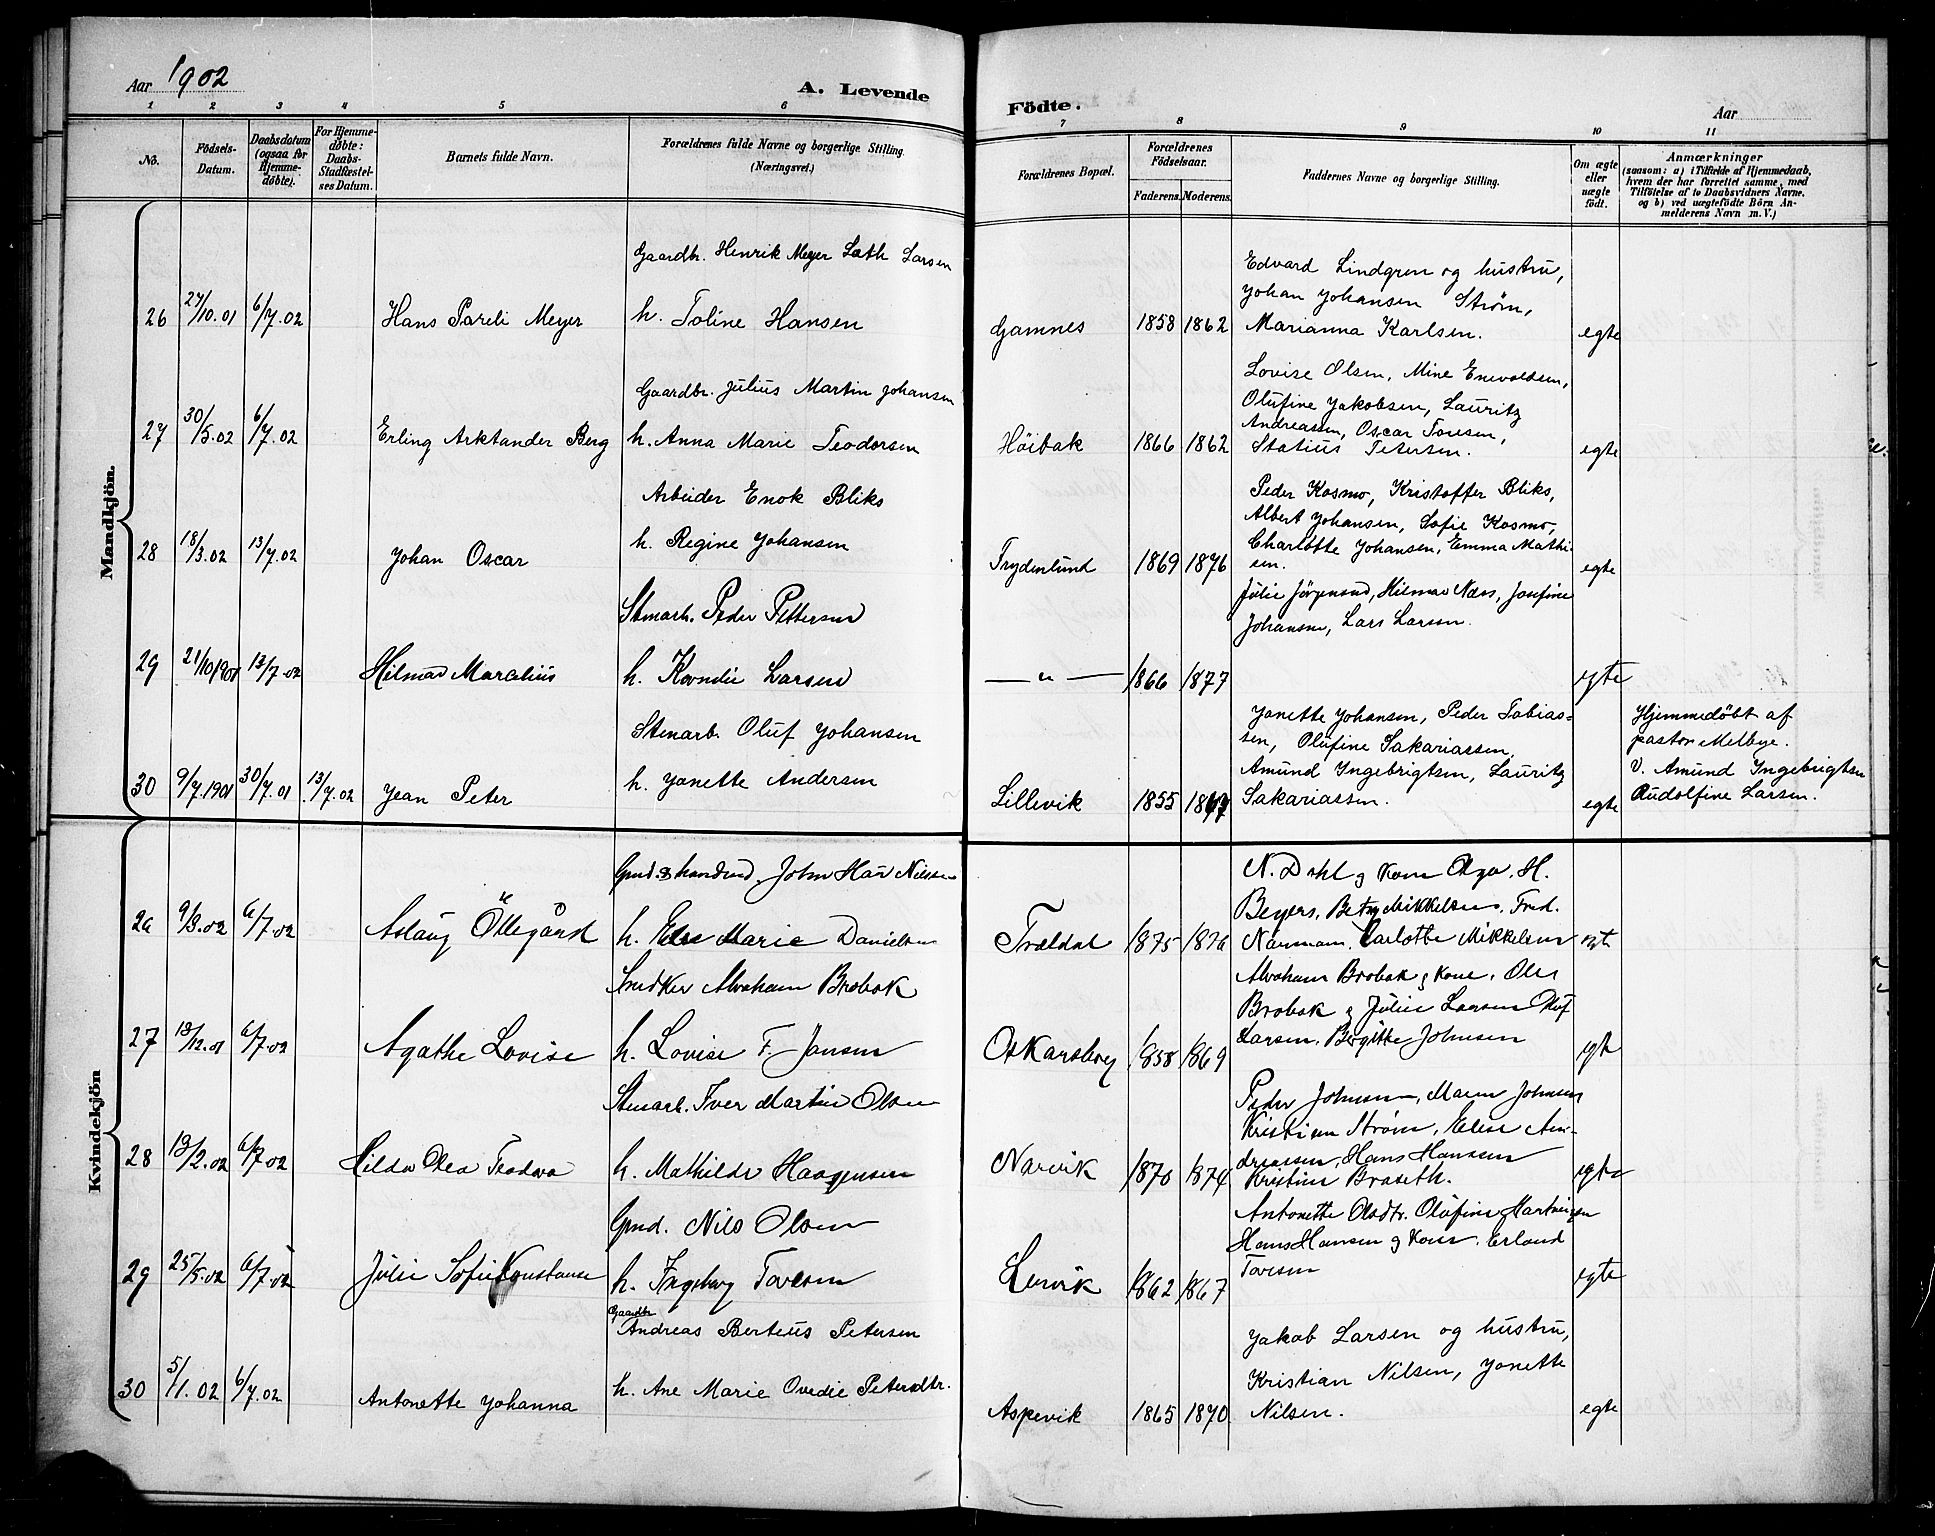 Aar 1902
A. Levende
Födte.
Aar
1 2 3 4 5 6 7 8 9 10 11
No.
Födsels-
Datum.
Daabsdatum
(ogsaa for
Hjemme-
døbte).
For Hjemme-
døbte:
Daabs-
Stadfæstel-
ses Datum.
Barnets fulde Navn.
Forældrenes fulde Navne og borgerlige Stilling.
(Næringsvei.)
Forældrenes Bopæl.
Forældrenes
Födselsaar.
Faderens. Moderens.
Faddernes Navne og borgerlige Stilling.
Om ægte
eller
uægte
födt.
Anmærkninger
(saasom: a) i Tilfælde af Hjemmedaab,
hvem der har forrettet samme, med
Tilföielse af to Daabsvidners Navne.
og b) ved uægtefödte Börn An-
melderens Navn m. V.)
Mandkjön.
Gaardbr. Henrik Meyer Læth Larsen
26 27/10.01 6/7.02 Hans Pareli Meyer h. Toline Hansen Gamnes 1858 1862
Edvard Lindgren og hustru,
Johan Johansen Strøm,
Marianna Karlsen. egte
Gaardbr. Julius Martin Johansen
27 30/5.02 6/7.02 Erling Arktander Berg h. Anna Marie Teodorsen Höibak 1866 1862
Lovise Olsen, Mine Enevoldsen,
Olufine Jakobsen, Lauritz
Andreassen, Oscar Toresen,
Statius Petersen. egte
Arbeider Enok Bliks
28 18/3.02 13/7.02 Johan Oscar h. Regine Johansen Frydenlund 1869 1876
Peder Kosmo, Kristoffer Bliks,
Albert Johansen, Sofie Kosmo,
Charlotte Johansen, Emma Mathi-
sen. egte
Stenarb. Peder Pettersen
29 21/10 1901 13/7.02 Hilmar h. Larsen — " — 1866 1877
Julie Jörgensen, Hilmar Næss, Josefine
Johansen, Lars Larsen. egte
Stenarb. Oluf Johansen
30 9/7.1901 30/7.01 13/7.02 Jean Peter h. Janette Andersen Lillevik 1855
Janette Johansen, Peder Tobias-
sen, Olufine Sakariassen,
Amund Ingebrigtsen, Lauritz
Sakariassen. egte
Hjemmedøbt af
pastor Melbye.
V. Amund Ingebrigtsen
Rudolfine Larsen.
Kvindekjön
John Nilsen
26 9/3.02 6/7.02 Aslaug Öllegård h. Else Marie Danielsen Trældal 1875 1876
N. Dahl og Kone H.
Beyers, Betzy Mikkelsen, Fred.
Carlotte Mikkelsen egt
Snedker Abraham Brobak
27 13/12.01 6/7.02 Agathe Lovise h. Lovise F. Jansen Oskarsborg 1858 1869
Abraham Brobak og Kone, Ole
Brobak og Julie Larsen Oluf
Larsen, Bergitte Johnsen egt
Stenarb. Iver Martin Olsen
28 19/2.02 6/7.02 Hilda Olea Teodora h. Mathilde Haagensen Narvik 1870 1874
Peder Johnsen, Maren Johnsen
Kristian Strøm, Elise An-
dreassen, Hans Hanssen
Kristine Braseth. egte
Gmd. Nils Olsen
29 25/5.02 6/7.02 Julie Sofie Konstanse h. Ingeborg Toresen Lervik 1862 1867
Antonette Olsdtr. Olufine Martinsen
Hans Hansen og Kone. Erland
Toresen egte
Gaardbr
Andreas Berteus Petersen
30 5/1.02 6/7.02 Antonette Johanna h. Ane Marie Ovedie Petersdtr. Aspevik 1865 1870
Jakob Larsen og hustru,
Kristian Nilsen, Janette
Nilsen. egte